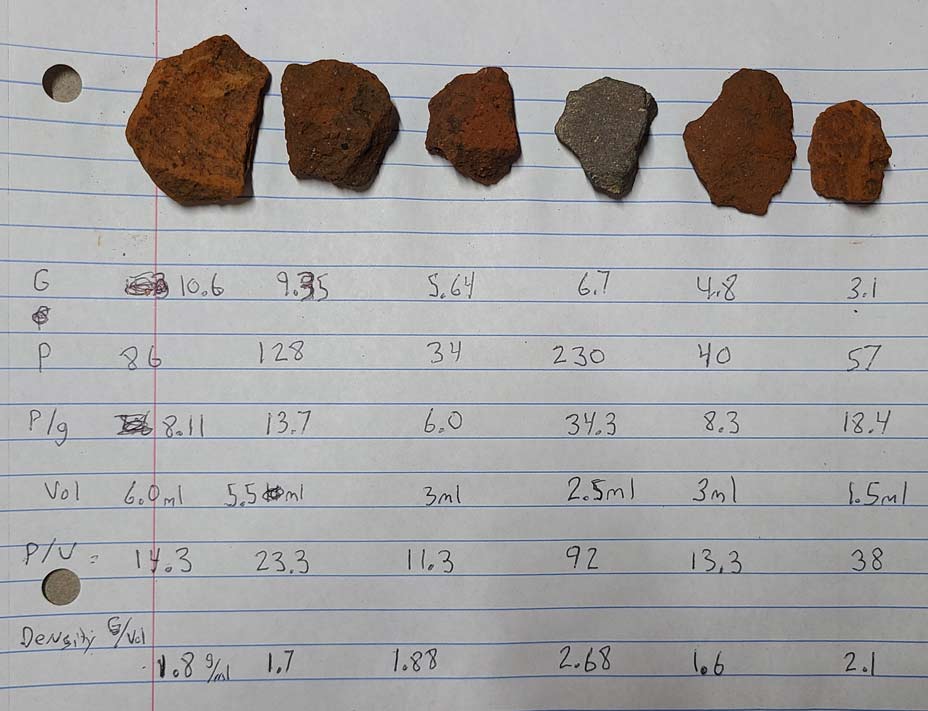 G 10.6 9.35 5.64 6.7 4.8 3.1
P 86 128 34 230 40 57
P/g 8.11 13.7 6.0 34.3 8.3 18.4
Vol 6.0ml 5.5 ml 3ml 2.5ml 3ml 1.5ml
P/V = 14.3 23.3 11.3 92 13.3 38
Density G/Vol
1.8 g/ml 1.7 1.88 2.68 1.6 2.1